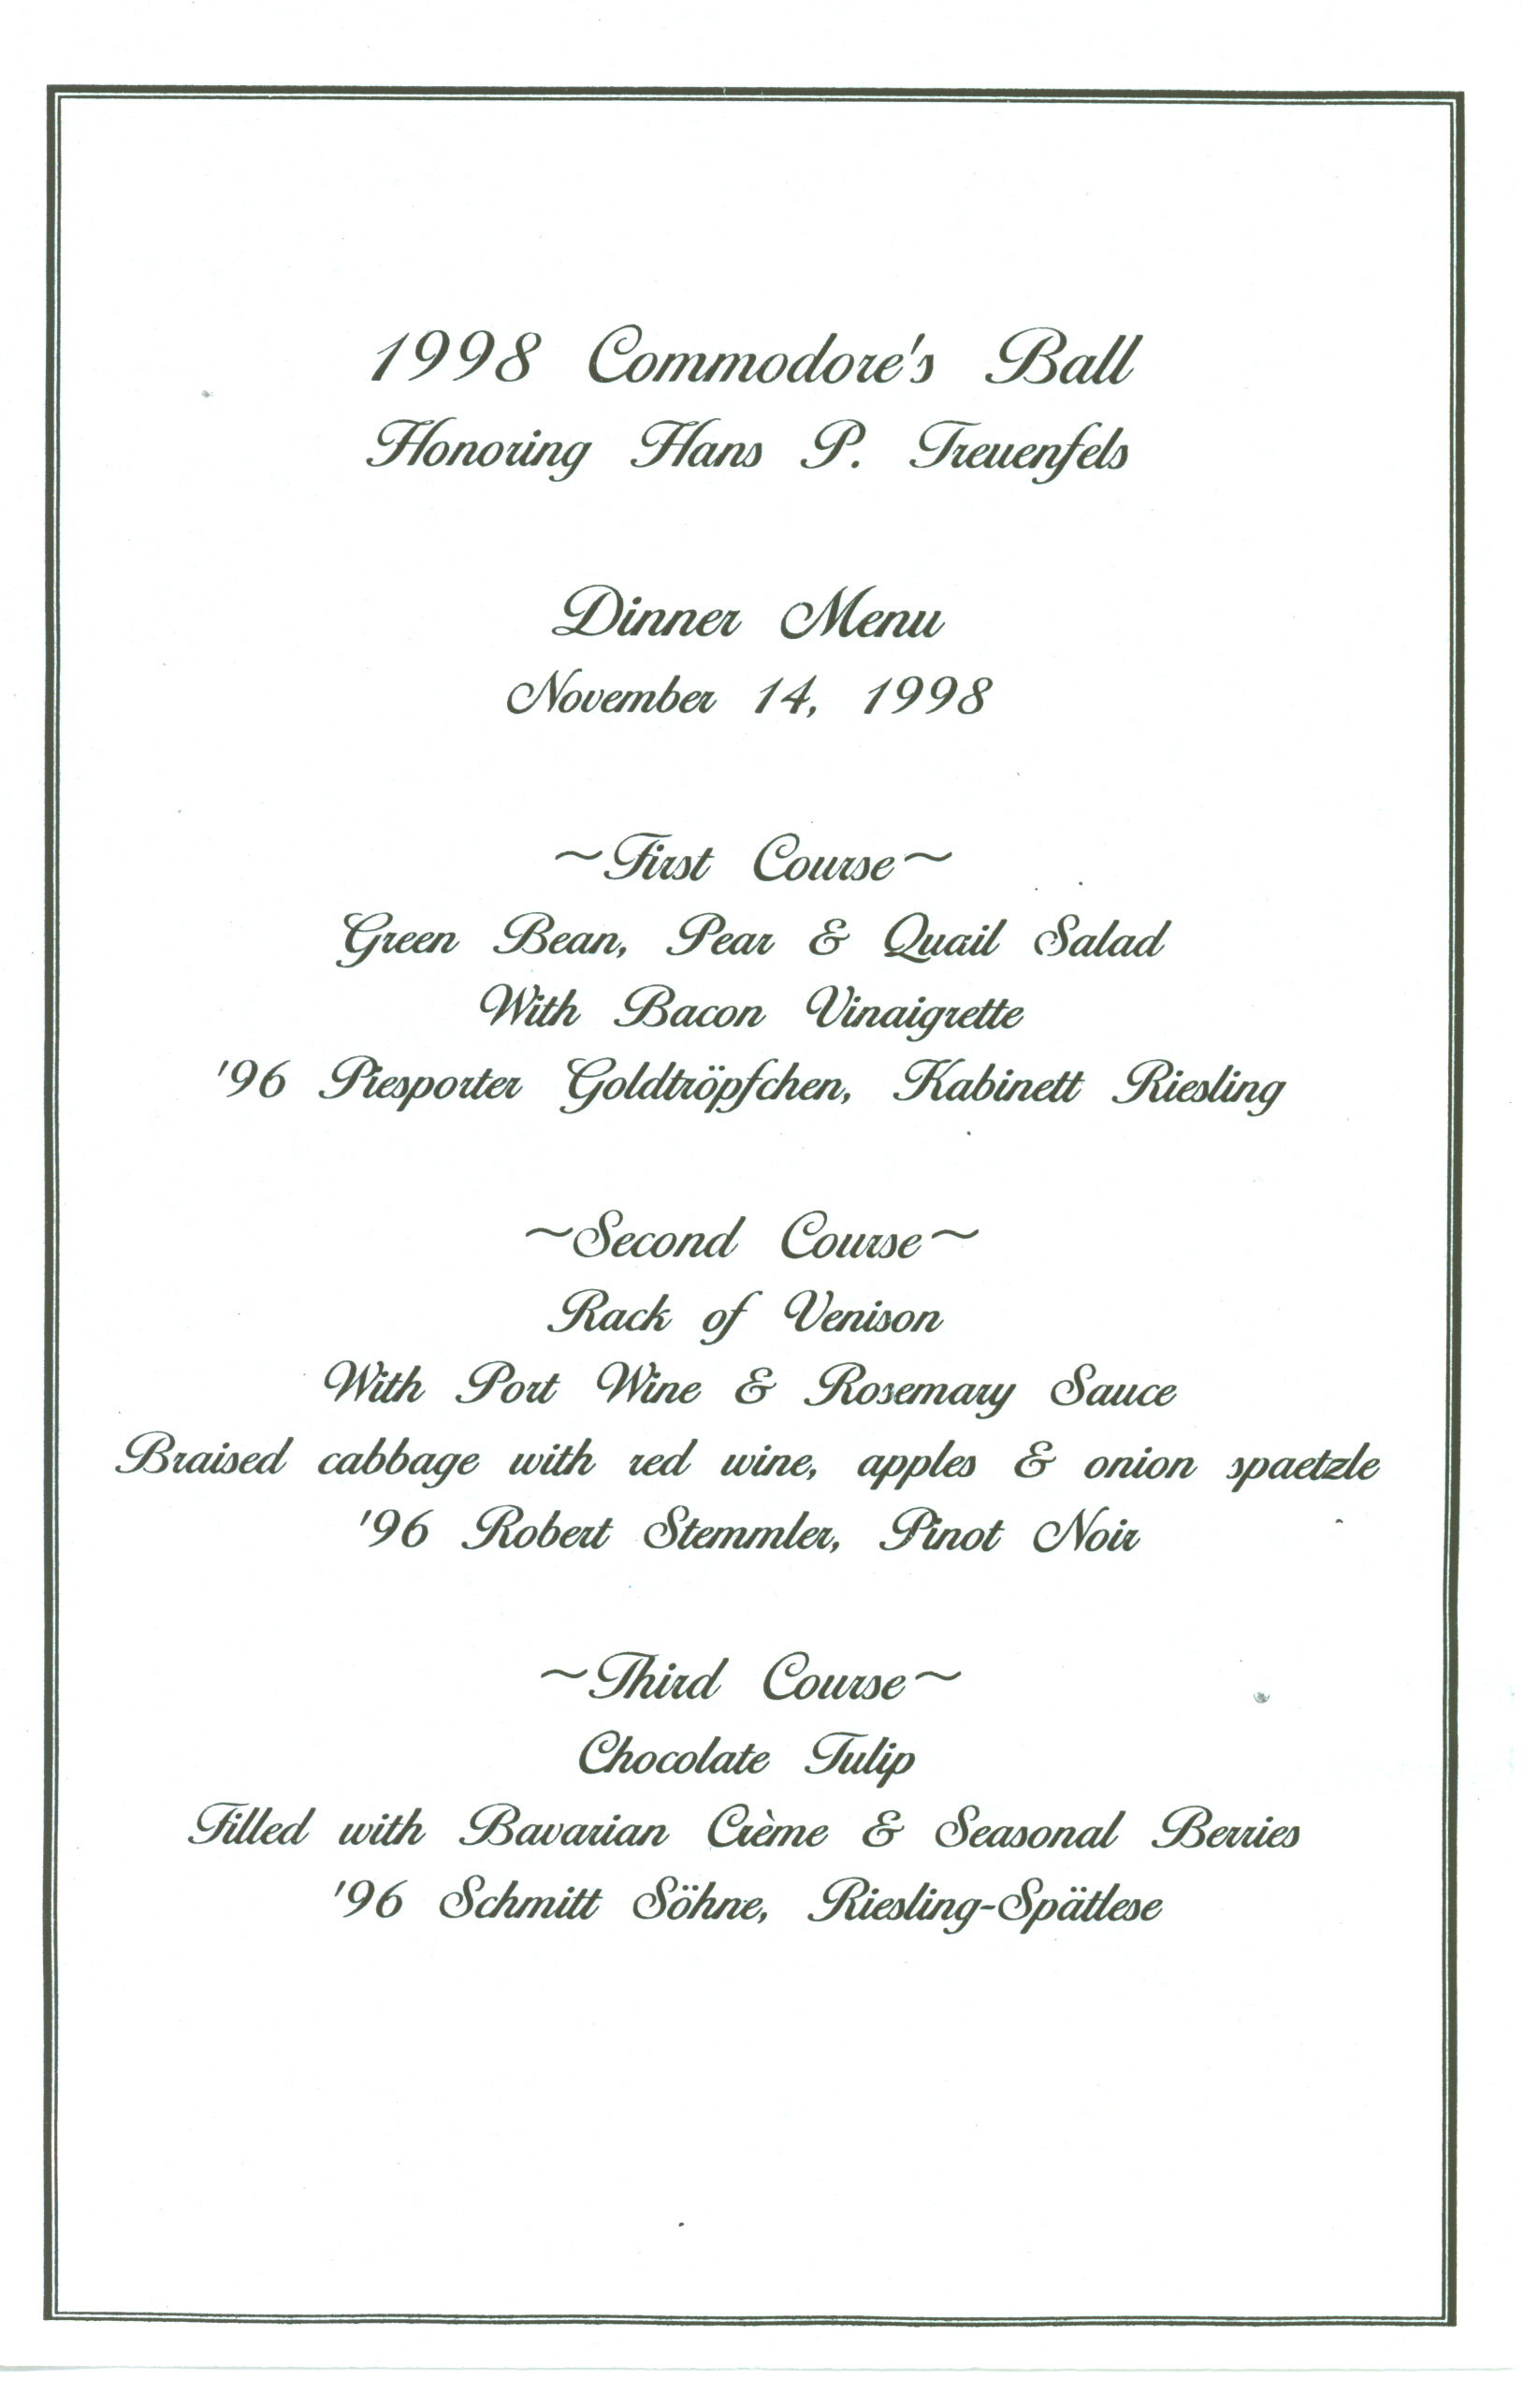 1998 Commodore's Ball
Honoring Hans P. Treuenfels
Dinner Menu
November 14, 1998
~First Course~
Green Bean, Pear & Quail Salad
With Bacon Vinaigrette
'96 Piesporter Goldtröpfchen, Kabinett Riesling
~Second Course~
Rack of Venison
With Port Wine & Rosemary Sauce
Braised cabbage with red wine, apples & onion spaetzle
'96 Robert Stemmler, Pinot Noir
~Third Course~
Chocolate Tulip
Filled with Bavarian Crème & Seasonal Berries
'96 Schmitt Söhne, Riesling-Spätlese